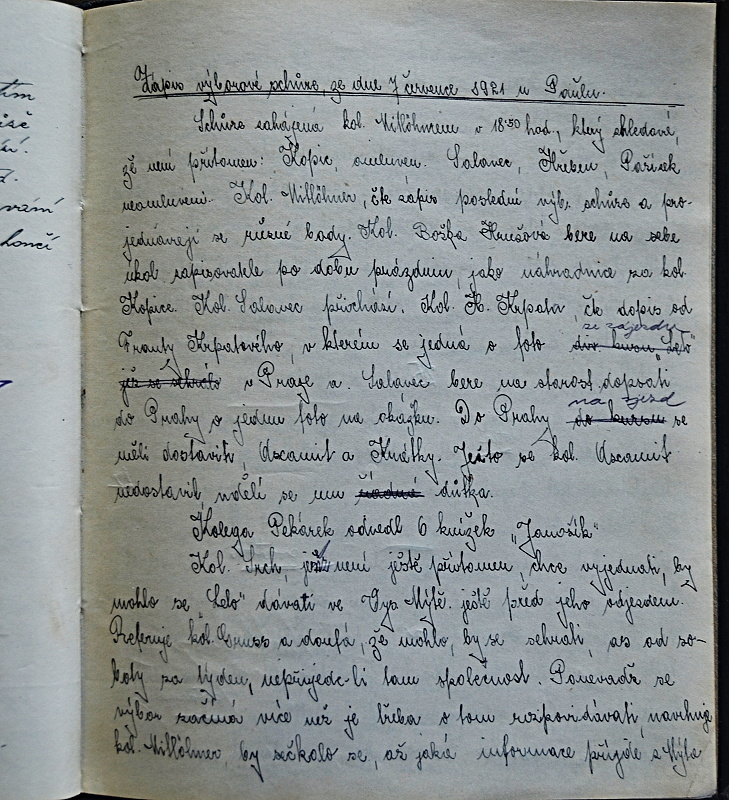 tím
isě
ní.
vrání
hončí
Zápis výborové schůze ze dne 7 července 1921 u Paůlu.
Schůze zahájená kol. Mitlöhnerem v 18·30 hod., který shledává,
že není přítomen: Kopic, omluven. Salavec, Hřeben, Pařízek
neomluveni. Kol. Mitlöhner, čte zápis poslední výb. schůze a pro-
jednávají se různé body. Kol. Boška Krušová bere na sebe
úkol zapisovatele po dobu prázdnin, jako náhradnice za kol.
Kopice. Kol. Salavec přichází. Kol. Fr. Krpata, čte dopis od
ze zájezdu
Franty Krpatového, v kterém se jedná o foto
v Praze a Salavec bere na starost dopsati
na zjezd
do Prahy o jednu foto na ukázku. Do Prahy se
měli dostaviti, Uzamit a Krátky. Ježto se kol. Uzamit
nedostavil, udělí se mu žádná důtka.
Kolega Pekárek odvedl 6 knížek „Janošík“
Kol. Srch, jenž není ještě přítomen, chce vyjednati, by
mohlo se „Léto“ dávati ve Vys. Mýtě. ještě před jeho odjezdem.
Referuje kol. Gruss a doufá, že mohlo, by se sehráti, as od so-
boty za týden, nepřijede-li tam společnost. Poněvadž se
výbor začíná více než je třeba o tom rozpovídávati, navrhuje
kol. Mitlöhner, by sečkalo se, až jaká informace přijde z Mýta